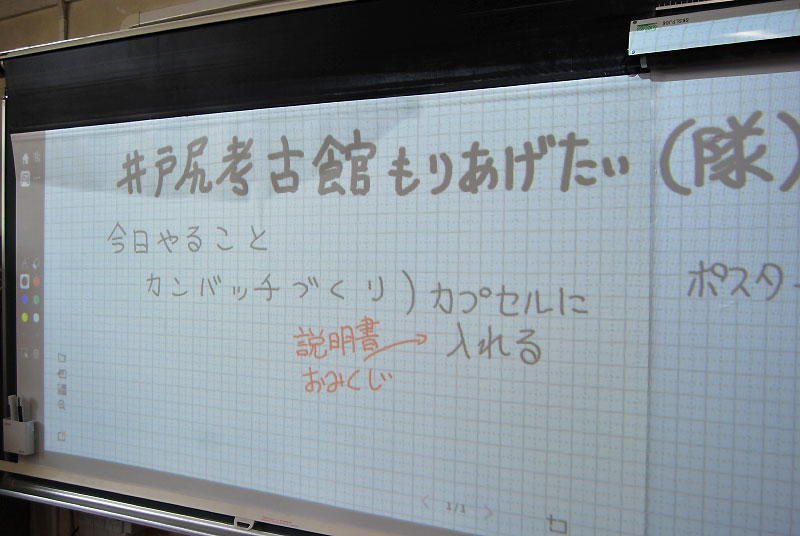 井戸尻考古館もりあげたい(隊)
今日やること
カンバッチづくり)カプセルに
入れる
説明書
おみくじ
ポスター
1/1